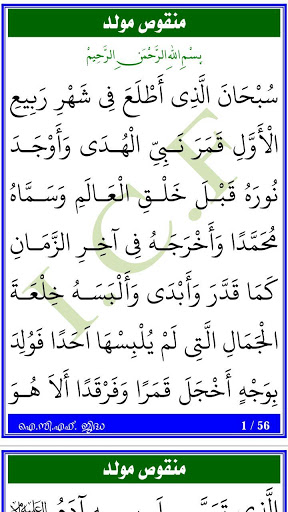 منقوص مولد
بِسْمِ اللهِ الرَّحْمَنِ الرَّحِيْمِ
سُبْحَانَ الَّذِى أَطْلَعَ فِى شَهْرِ رَبِيعِ
الْأَوَّلِ قَمَرَ نَبِيِّ الْهُدَى وَأَوْجَدَ
نُورَهُ قَبْلَ خَلْقِ الْعَالَمِ وَسَمَّاهُ
مُحَمَّدًا وَأَخْرَجَهُ فِى آخِرِ الزَّمَانِ
كَمَا قَدَّرَ وَأَبْدَى وَأَلْبَسَهُ خِلْعَةَ
الْجَمَالِ الَّتِى لَمْ يُلْبِسْهَا اَحَدًا فَوُلِدَ
بِوَجْهٍ أَخْجَلَ قَمَرًا وَفَرْقَدًا أَلاَ هُوَ
I.C.F
ഐ.സി.എഫ്. ജിദ്ദ 1 / 56
منقوص مولد